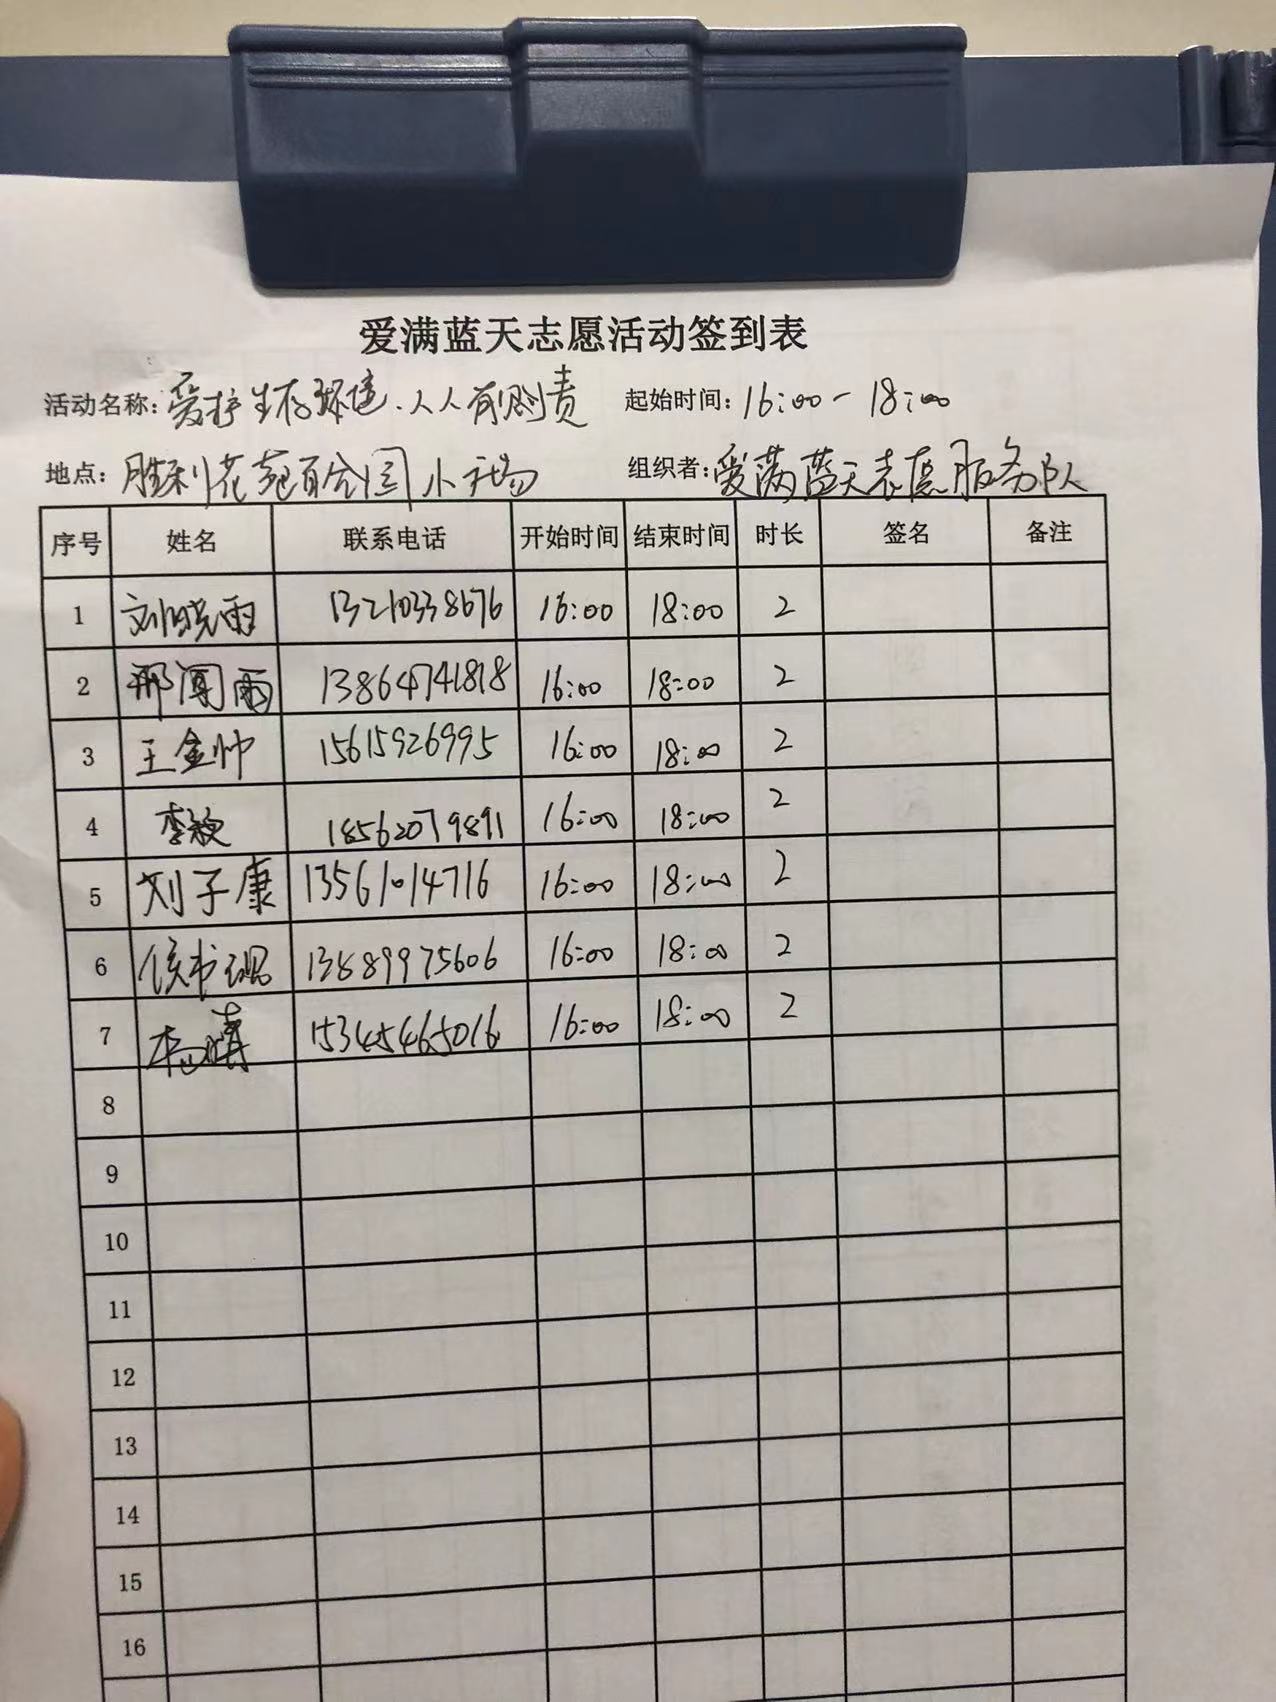 爱满蓝天志愿活动签到表
活动名称:爱护生存环境.人人有则责 起始时间:16:00-18:00
地点:胜利花苑百合园小广场 组织者:爱满蓝天志愿服务队
序号 姓名 联系电话 开始时间 结束时间 时长 签名 备注
1 刘晓雨 13210338676 16:00 18:00 2
2 邢闻雨 13864741818 16:00 18:00 2
3 王金帅 15615926995 16:00 18:00 2
4 李 18562079891 16:00 18:00 2
5 刘子康 13561014716 16:00 18:00 2
6 侯书琨 13589975606 16:00 18:00 2
7 15345465016 16:00 18:00 2
8
9
10
11
12
13
14
15
16